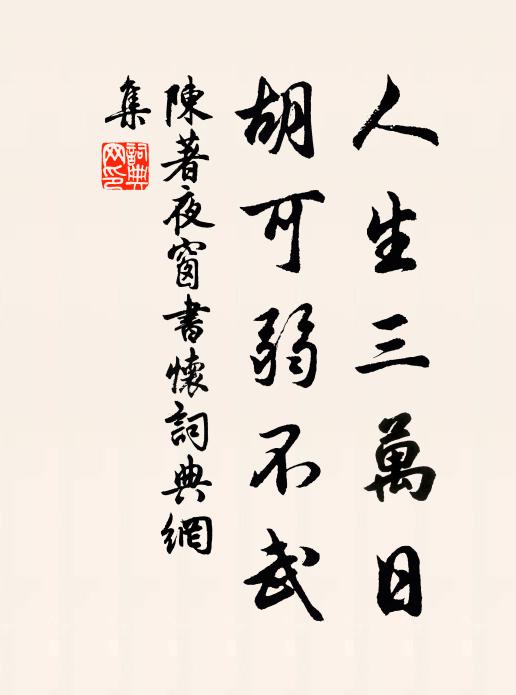 人生三萬日
胡可弱不武
陳著夜窗書懷詞典網
集
詞典網印